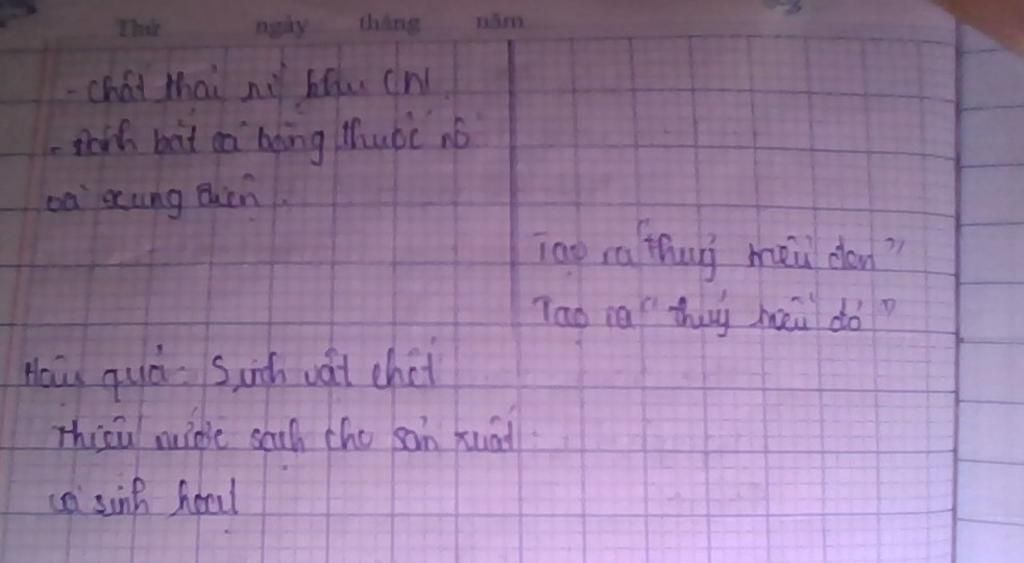 Thứ ngày tháng năm
- chất thải từ khu CN.
- đánh bắt cá bằng thuốc nổ
và xung điện.
Tạo ra "thuỷ triều đen"
Tạo ra "thuỷ triều đỏ"
Hậu quả: Sinh vật chết
thiếu nước sạch cho sản xuất
và sinh hoạt